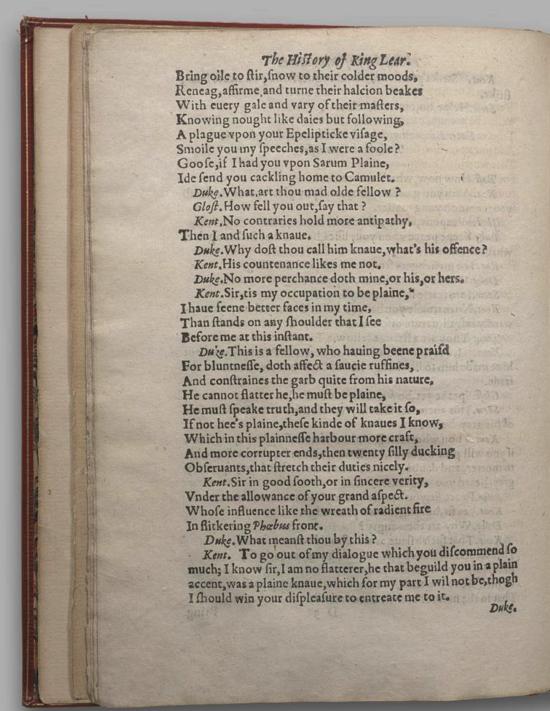 The Hiſtory of King Lear.
Bring oile to ſtir,ſnow to their colder moods,
Reneag,affirme,and turne their halcion beakes
With euery gale and vary of their maſters,
Knowing nought like daies but following,
A plague vpon your Epelipticke viſage,
Smoile you my ſpeeches,as I were a foole?
Gooſe,if I had you vpon Sarum Plaine,
Ide ſend you cackling home to Camulet.
Duke.What,art thou mad olde fellow ?
Gloſt.How fell you out,ſay that ?
Kent.No contraries hold more antipathy,
Then I and ſuch a knaue.
Duke.Why doſt thou call him knaue,what's his offence?
Kent.His countenance likes me not.
Duke.No more perchance doth mine,or his,or hers.
Kent.Sir,tis my occupation to be plaine,
I haue ſeene better faces in my time,
Than ſtands on any ſhoulder that I ſee
Before me at this inſtant.
Duke.This is a fellow, who hauing beene praiſd
For bluntneſſe, doth affect a ſaucie ruffines,
And conſtraines the garb quite from his nature,
He cannot flatter he,he muſt be plaine,
He muſt ſpeake truth,and they will take it ſo,
If not hee's plaine,theſe kinde of knaues I know,
Which in this plainneſſe harbour more craft,
And more corrupter ends,then twenty ſilly ducking
Obſeruants,that ſtretch their duties nicely.
Kent.Sir in good ſooth,or in ſincere verity,
Vnder the allowance of your grand aſpect.
Whoſe influence like the wreath of radient fire
In flitkering Phœbus front.
Duke.What meanſt thou by this ?
Kent. To go out of my dialogue which you diſcommend ſo
much; I know ſir,I am no flatterer,he that beguild you in a plain
accent,was a plaine knaue,which for my part I wil not be,thogh
I ſhould win your diſpleaſure to entreate me to it.
Duke.